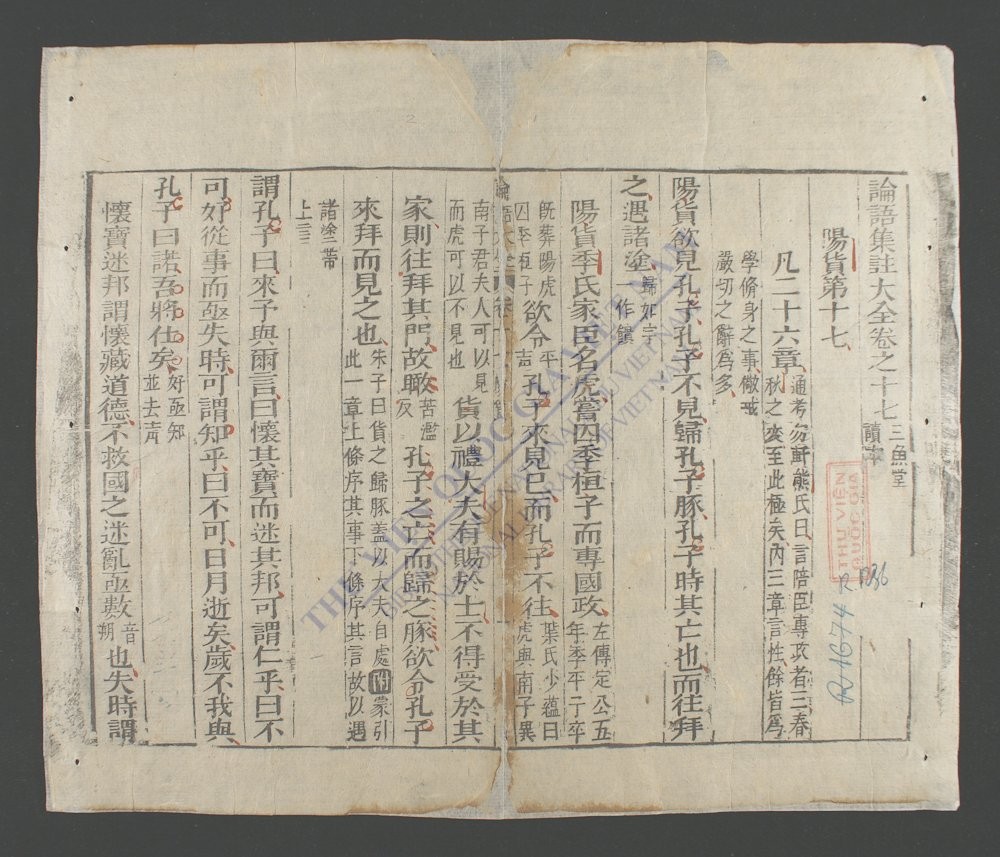 論語集註大全卷之十七 三魚堂讀本
陽貨第十七
凡二十六章 通考勿軒熊氏曰言陪臣專政者三春秋之衰至此極矣內三章言性餘皆為
學脩身之事儆戒嚴切之辭為多
陽貨欲見孔子孔子不見歸孔子豚孔子時其亡也而往拜
之遇諸塗 歸如字一作饋
陽貨季氏家臣名虎嘗囚季桓子而專國政 左傳定公五年季平子卒
既葬陽虎囚季桓子 欲令 平 吉 孔子來見已而孔子不往 葉氏少蘊曰虎與南子異
南子君夫人可以見而虎可以不見也 貨以禮大夫有賜於士不得受於其
家則往拜其門故瞰 苦濫反 孔子之亡而歸之豚欲令孔子
來拜而見之也 朱子曰貨之歸豚蓋以大夫自處 附 蒙引此一章上條序其事下條序其言故以遇
諸塗帶上言
謂孔子曰來予與爾言曰懷其寶而迷其邦可謂仁乎曰不
可好從事而亟失時可謂知乎曰不可日月逝矣歲不我與
孔子曰諾吾將仕矣 好亟知並去声
懷寶迷邦謂懷藏道德不救國之迷亂亟數 音朔 也失時謂
THƯ VIỆN QUỐC GIA
R 1936
THƯ VIỆN QUỐC GIA VIỆT NAM
NATIONAL LIBRARY OF VIETNAM
2